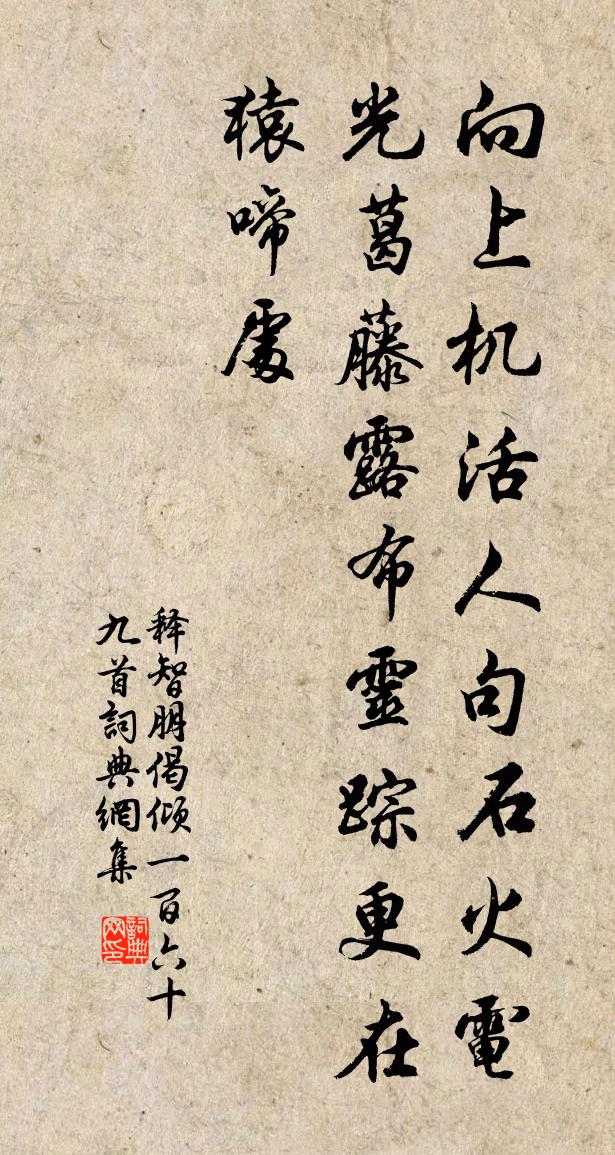 向上机活人句石火電
光葛藤露布靈踪更在
猿啼處
释智朋偈傾一百六十
九首詞典網集
詞典
网印